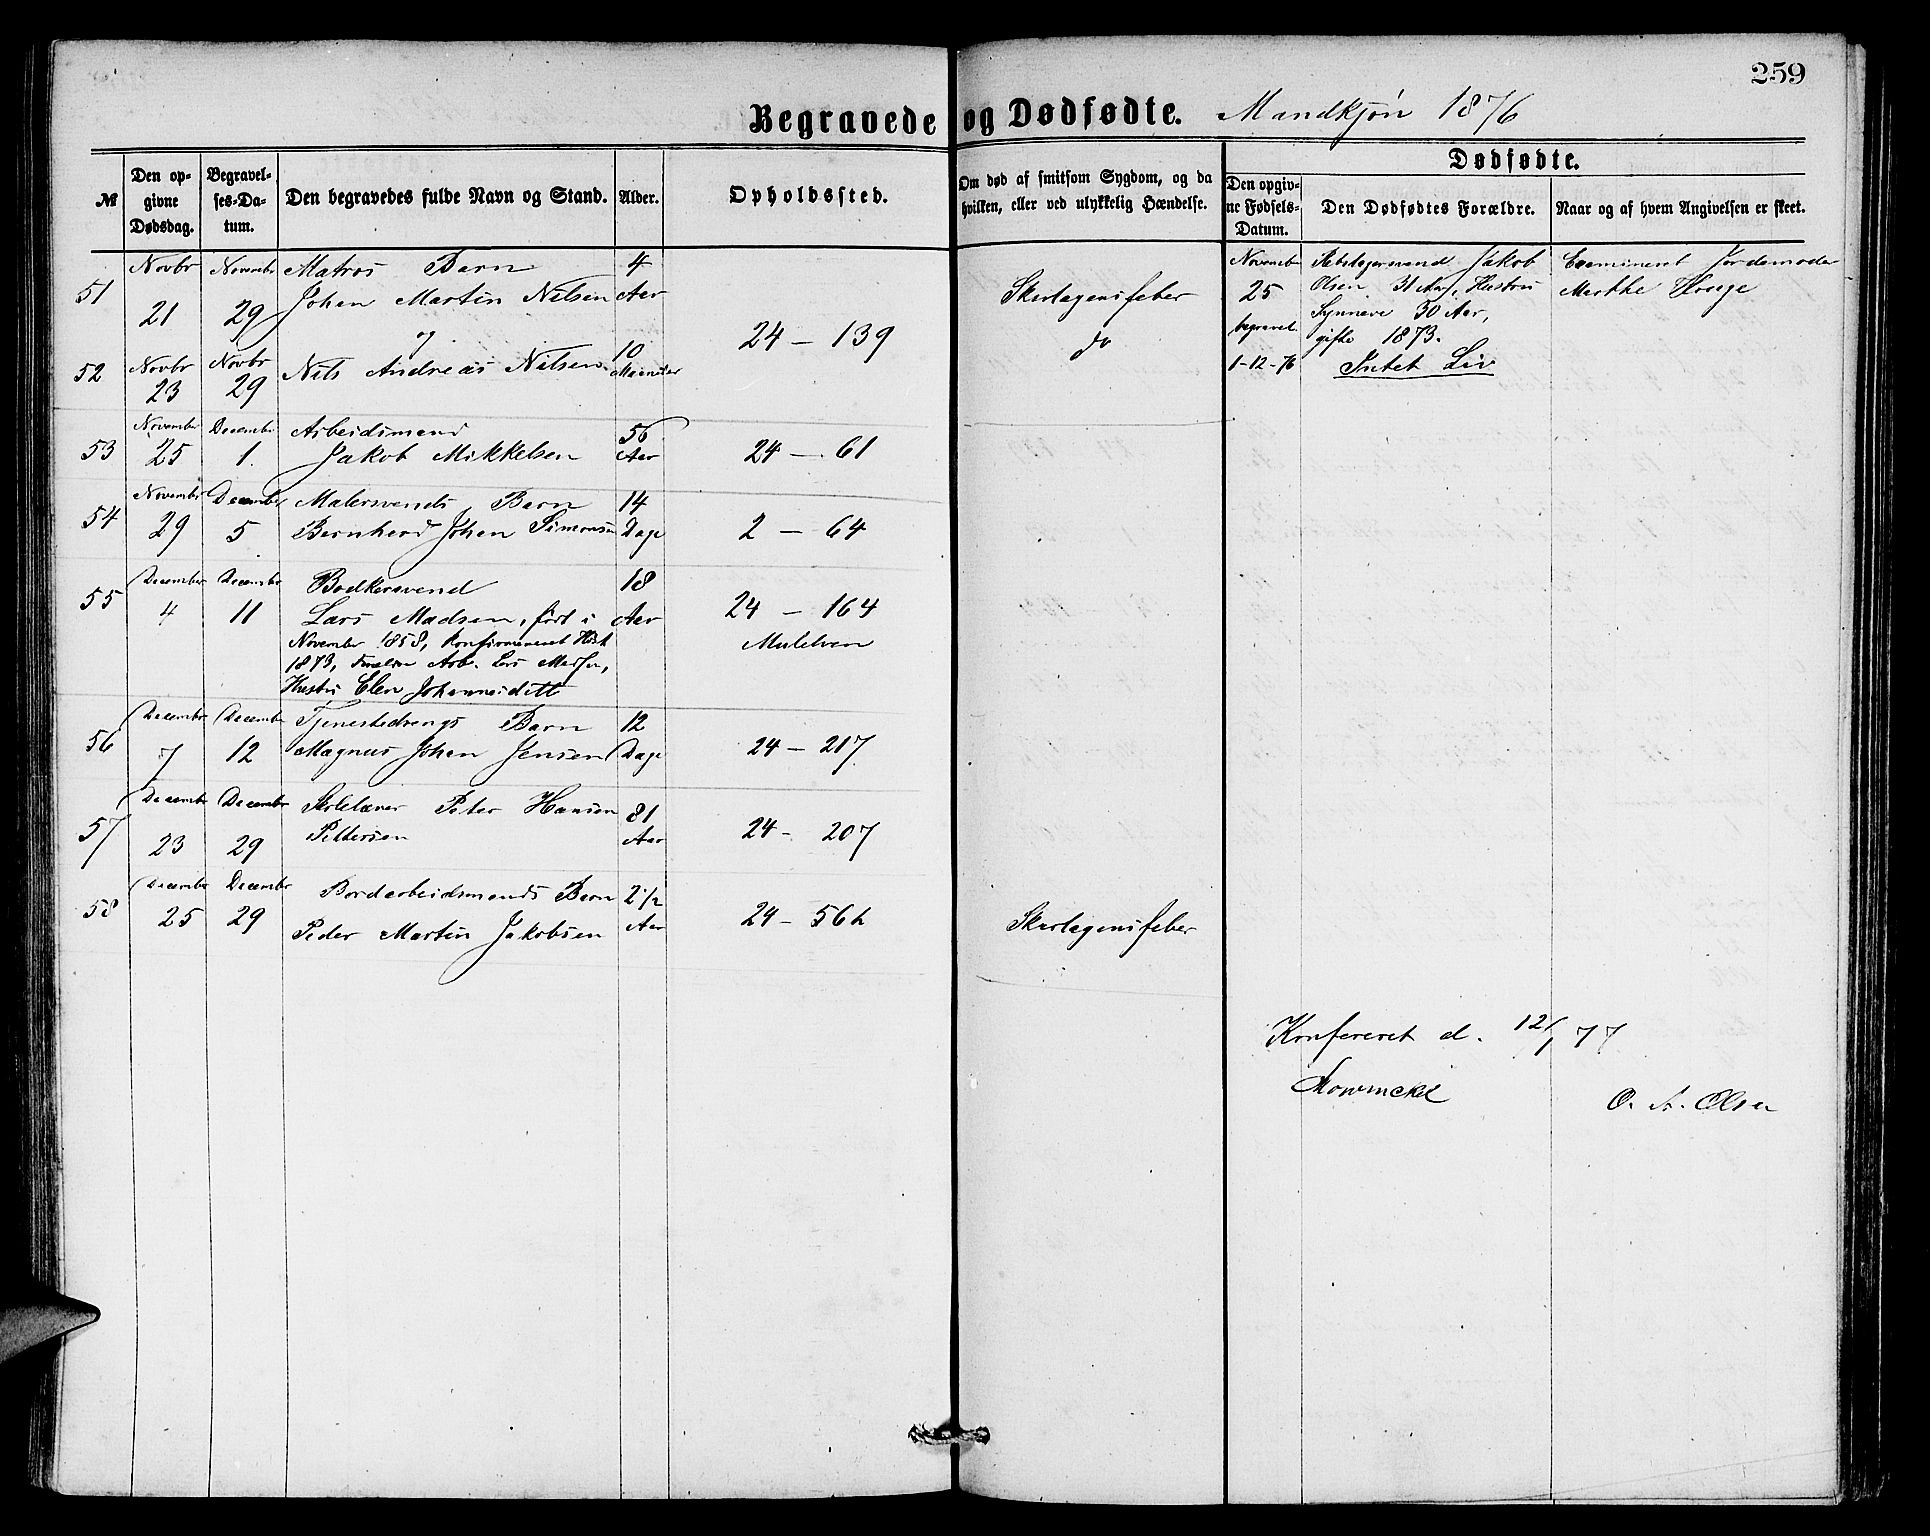 259
Begravede og Dødfødte. Mandkjøn 1876
№
Den opgivne Dødsdag.
Begravelses-Datum.
Den begravedes fulde Navn og Stand.
Alder.
Opholdssted.
Om død af smitsom Sygdom, og da hvilken, eller ved ulykkelig Hændelse.
Dødfødte.
Den opgivne Fødsels-Datum.
Den Dødfødtes Forældre.
Naar og af hvem Angivelsen er skeet.
51 Novbr 21 Novembr 29 Matros Barn 4 Aar
Johan Martin Nilsen
og
24 – 139 Skarlagensfeber
52 Novbr 23 Novbr 29 Nils Andreas Nilsen 10 Maaneder do
Novembr 25 begravet 1-12-76
Rebslagersvend Jakob
Olsen 31 Aar, Hustru
Synneve 30 Aar,
gifte 1873.
Intet Liv
Examineret Jordemoder
Marthe Hauge
53 November 25 Decembr 1. Arbeidsmand 56 Aar
Jakob Mikkelsen 24 – 61
54 Novembr 29 December 5 Malersvends Barn 14 Dage
Bernhard Johan Simonsen 2 – 64
55 December 4 Decembr 11 Bødkersvend 18 Aar
Lars Madsen, født i 24 – 164
November 1858, Konfirmeret Høst Mulelven
1873, Forældre Arb. Lars Madsen,
Hustru Elen Johannesdtt
56 Decembr 7 Decembr 12 Tjenestedrengs Barn 12 Dage
Magnus Johan Jensen 24 – 217
57 December 23 December 29 Skolelærer Peter Hansen 81 Aar
Pettersen 24 – 207
58 Decembr 25 Decembr 29 Bordarbeidsmands Barn 2 1/2 Aar
Peder Martin Jakobsen 24 – 56b Skarlagensfeber
Konfereret d. 12/1 77
Mowinckel
O. A. Olsen